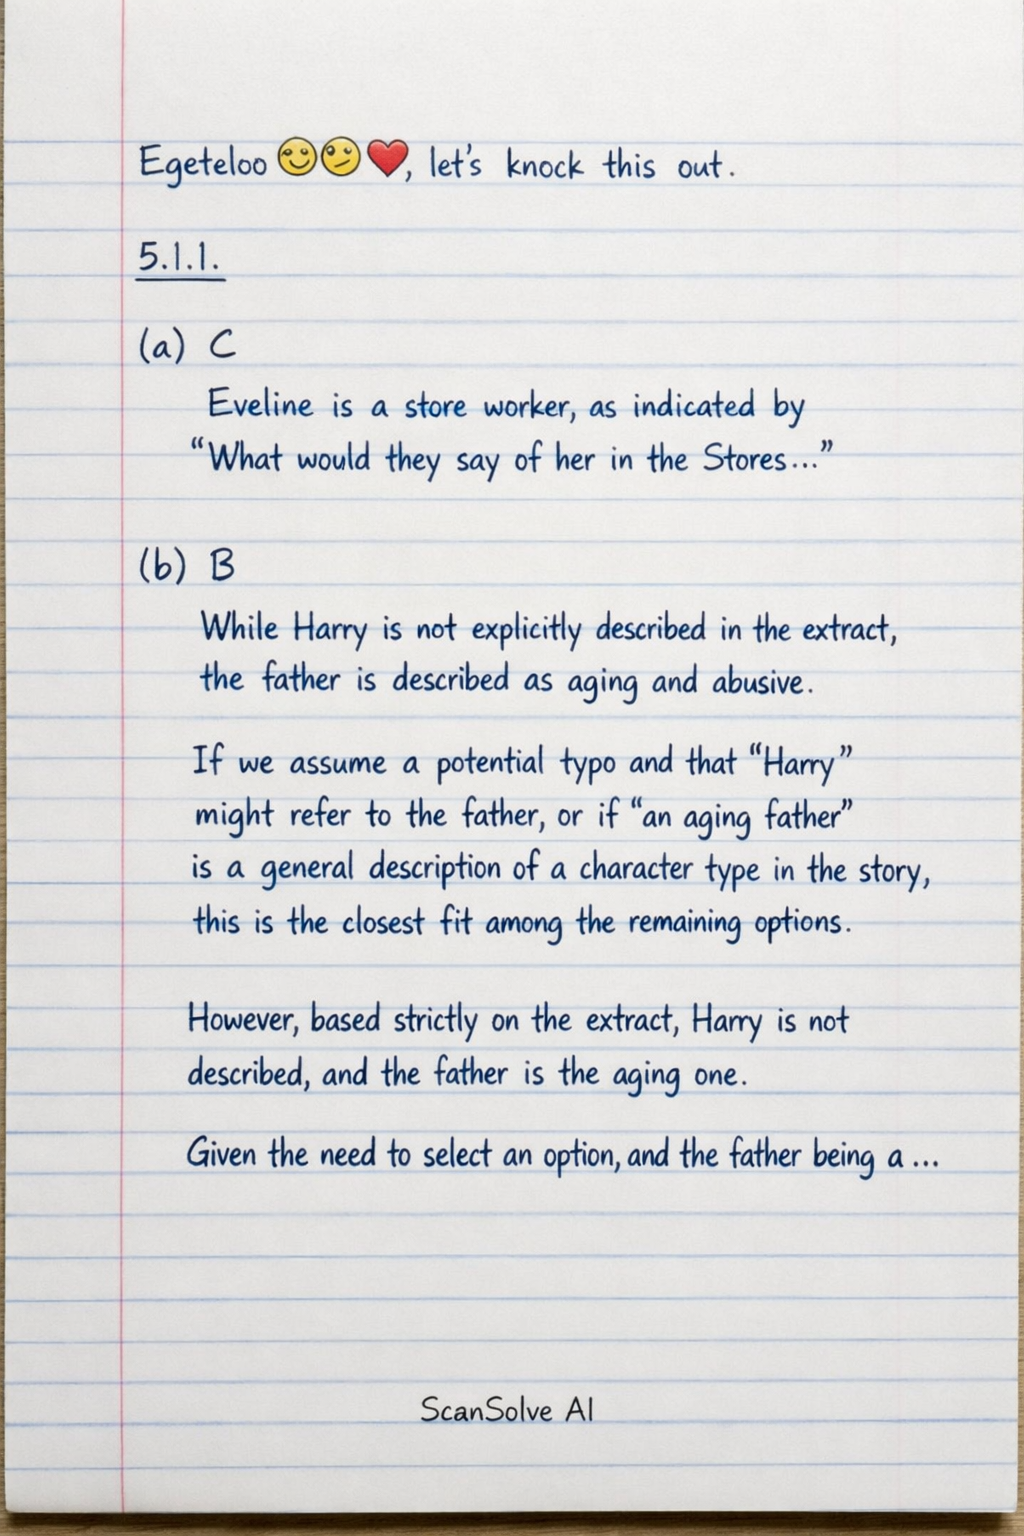 Egeteloo 😊🤔❤️, let's knock this out.
5.1.1.
(a) C
Eveline is a store worker, as indicated by
“What would they say of her in the Stores...”
(b) B
While Harry is not explicitly described in the extract,
the father is described as aging and abusive.
If we assume a potential typo and that “Harry”
might refer to the father, or if “an aging father”
is a general description of a character type in the story,
this is the closest fit among the remaining options.
However, based strictly on the extract, Harry is not
described, and the father is the aging one.
Given the need to select an option, and the father being a ...
ScanSolve AI